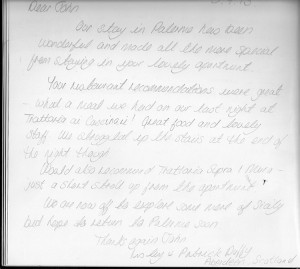 Dear John
Our stay in Palermo has been
wonderful and made all the more special
from staying in your lovely apartment.
Your restaurant recommendations were great
- what a meal we had on our last night at
Trattoria ai Cascinari! Great food and lovely
staff. We struggled up the stairs at the end of
the night though!
Would also recommend Trattoria Supra i Mura -
just a short stroll up from the apartment.
We are now off to explore some more of Sicily
but hope to return to Palermo soon.
Thanks again John
Lesley + Patrick
Scotland